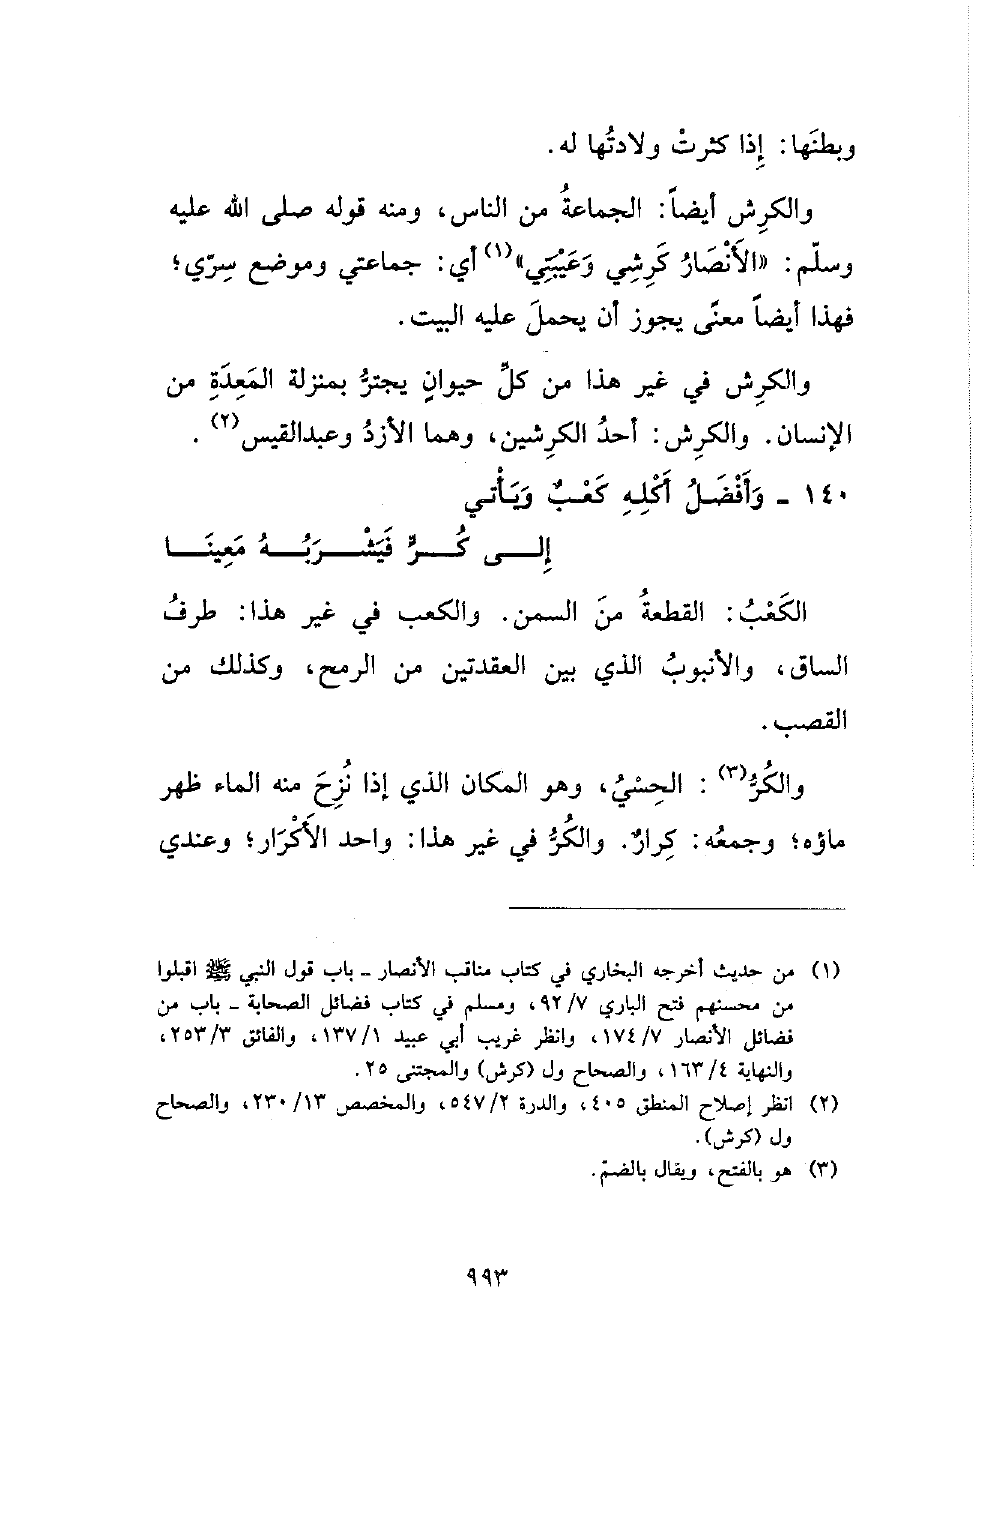 وبطنَها: إِذا كثرتْ ولادتُها له.
والكرِش أيضاً: الجماعةُ من الناس، ومنه قوله صلى الله عليه
وسلّم: «الأَنْصَارُ كَرِشِي وَعَيْبَتِي»(١) أي: جماعتي وموضع سِرّي؛
فهذا أيضاً معنًى يجوز أن يحملَ عليه البيت.
والكرِش في غير هذا من كلِّ حيوانٍ يجترُّ بمنزلة المَعِدَةِ من
الإنسان. والكرِش: أحدُ الكرِشين، وهما الأزدُ وعبدالقيس(٢).
١٤٠ ـ وَأَفْضَلُ أَكْلِهِ كَعْبٌ وَيَأْتي
إِلـى كُـرٍّ فَيَشْـرَبُـهُ مَعِينَـا
الكَعْبُ: القطعةُ منَ السمن. والكعب في غير هذا: طرفُ
الساق، والأنبوبُ الذي بين العقدتين من الرمح، وكذلك من
القصب.
والكُرُّ(٣): الحِسْيُ، وهو المكان الذي إذا نُزِحَ منه الماء ظهر
ماؤه؛ وجمعُه: كِرارٌ. والكُرُّ في غير هذا: واحد الأَكْرَار؛ وعندي
(١) من حديث أخرجه البخاري في كتاب مناقب الأنصار ـ باب قول النبي ﷺ اقبلوا
من محسنهم فتح الباري ٩٢/٧، ومسلم في كتاب فضائل الصحابة ـ باب من
فضائل الأنصار ١٧٤/٧، وانظر غريب أبي عبيد ١٣٧/١، والفائق ٢٥٣/٣،
والنهاية ١٦٣/٤، والصحاح ول (كرش) والمجتنى ٢٥.
(٢) انظر إصلاح المنطق ٤٠٥، والدرة ٥٤٧/٢، والمخصص ٢٣٠/١٣، والصحاح
ول (كرش).
(٣) هو بالفتح، ويقال بالضمّ.
٩٩٣